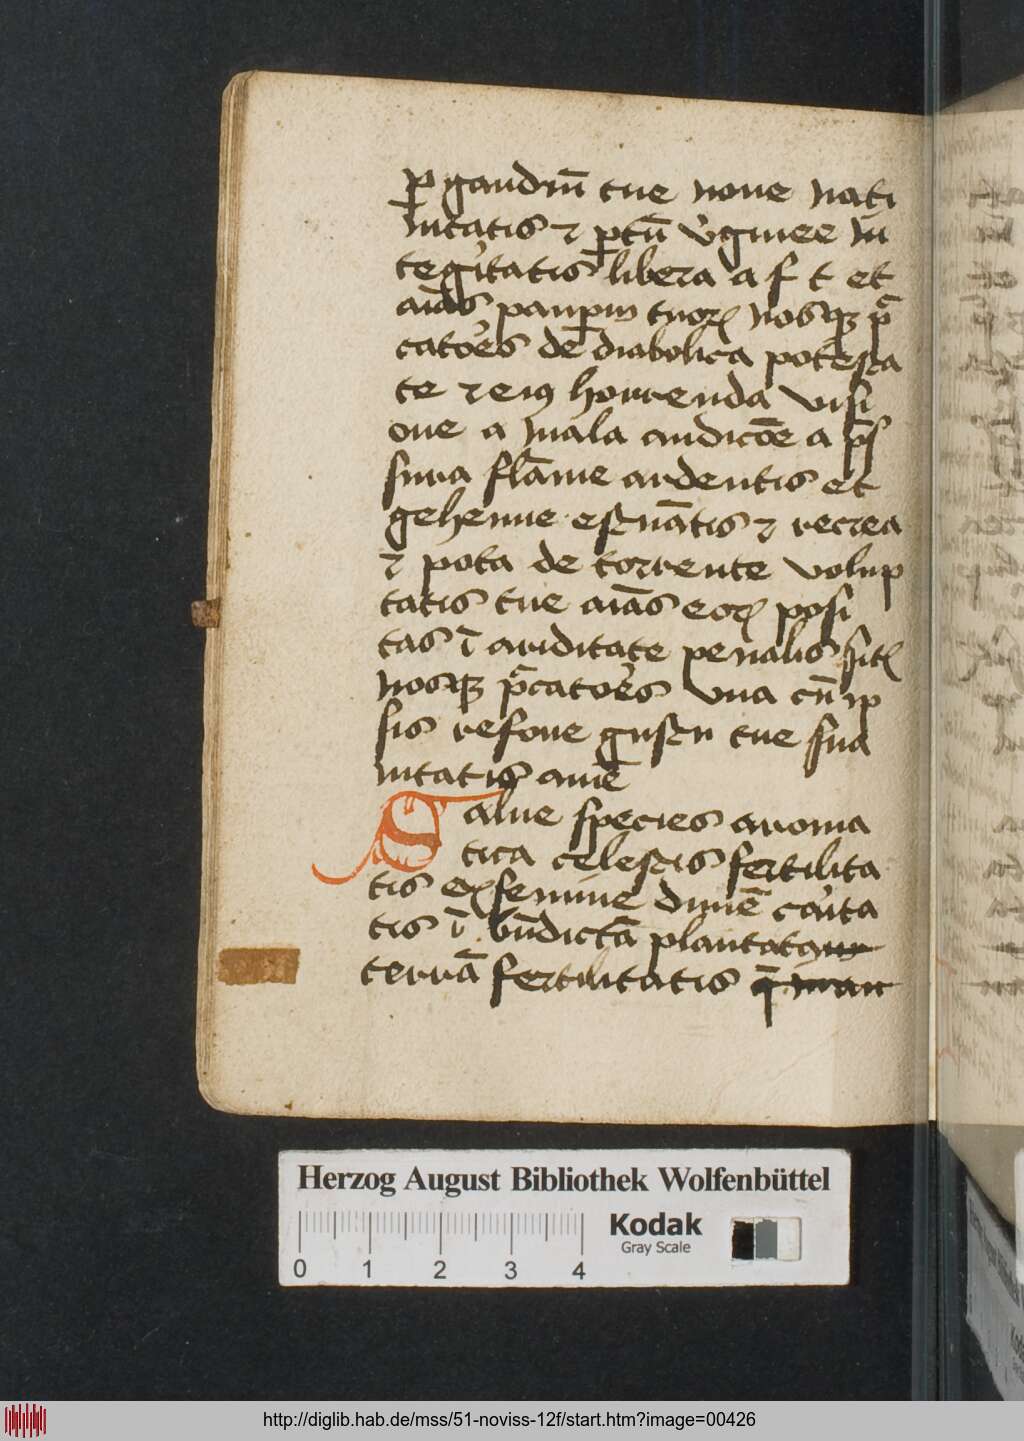 ꝑ gaudiū tue noue nati
uitatis ⁊ ꝑtū v̓ginee in
teg̓itatis libera a f t et
aīas pauꝑm tuoꝝ nosqꝫ p̄
cato̓es de diabolica potesta
te ⁊ eiꝯ horrenda visi
one a mala audicōe a p̄s
sura flāme ardentis et
gehenne estuātis ⁊ recrea
⁊ pota de torrente volup
tatis tue aīas eoꝝ posi
tas ī ariditate penalis sitꝭ
nosqꝫ p̄cato̓es vna cū ip
sis refoue gustu tue sua
uitatis amē
Salue species aroma
tica celestis fertilita
tis ex semine diuīe ca̓ita
tis ī bn̄dictā plantata
terrā fertilitatis
Herzog August Bibliothek Wolfenbüttel
Kodak
Gray Scale
0 1 2 3 4
http://diglib.hab.de/mss/51-noviss-12f/start.htm?image=00426